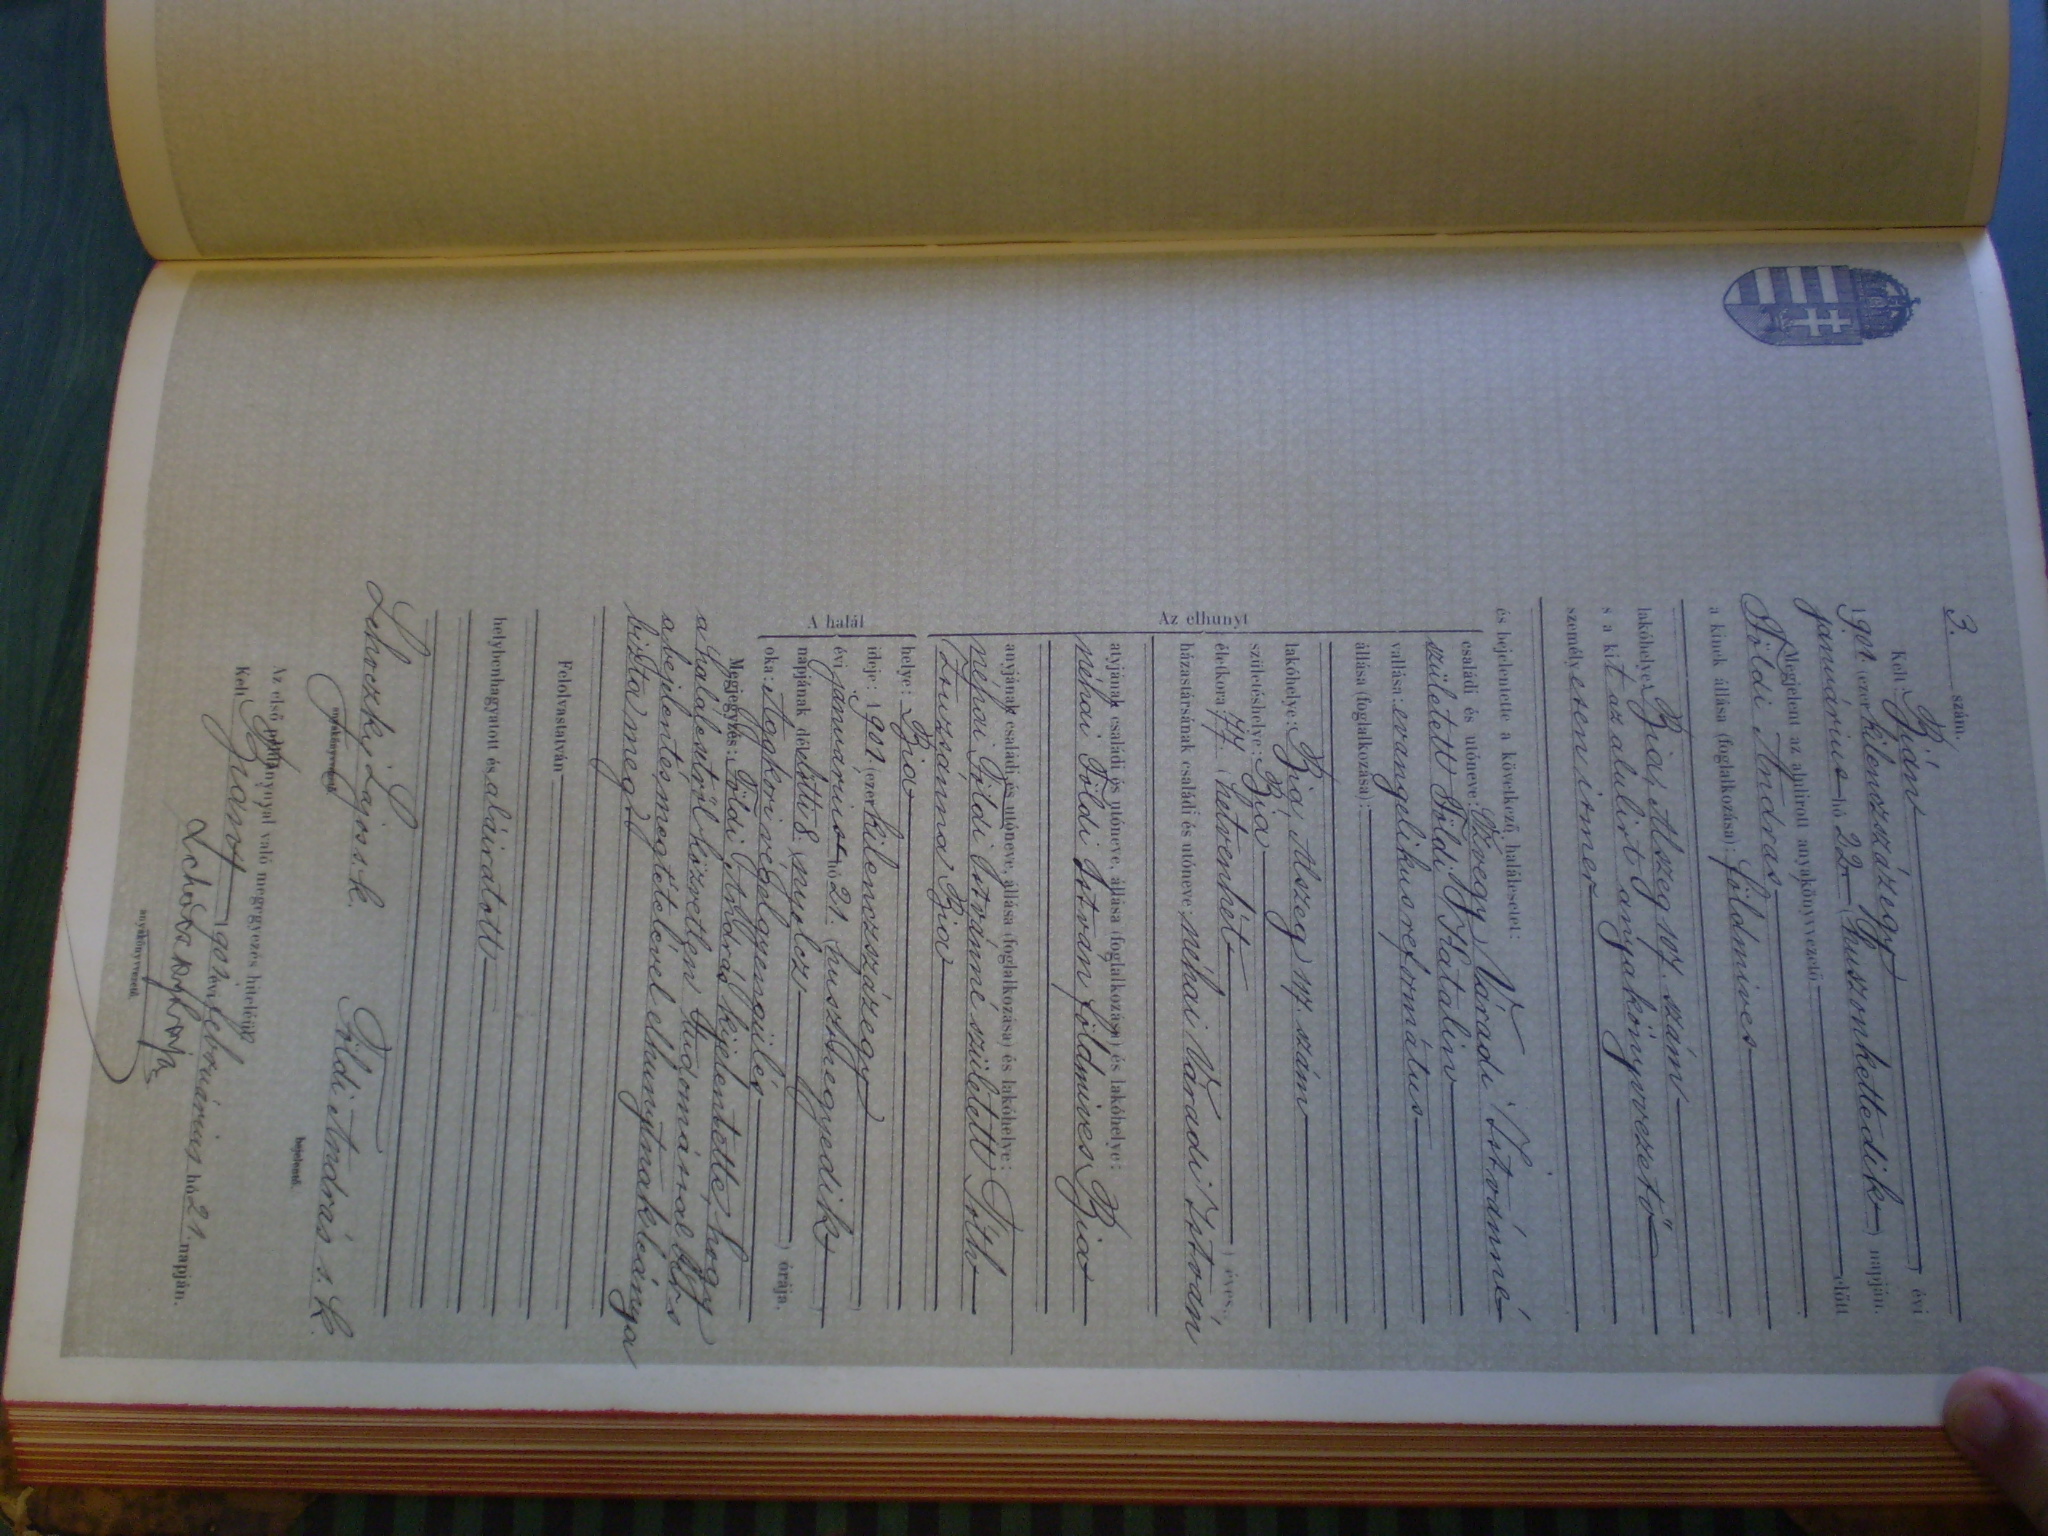 3. szám.
Kelt Bián
1901. (ezer kilenczszázegy) évi
január hó 22 (huszonkettedik) napján.
Megjelent az alulirott anyakönyvvezető előtt
Földi András
a kinek állása (foglalkozása): földmives
lakóhelye Bia, Alszeg 107. szám
s a kit az alulirt anyakönyvvezető
személyesen ismer
és bejelentette a következő halálesetet:
Az elhunyt
családi és utóneve: Özvegy Váradi Istvánné
született Földi Katalin
vallása: evangelikus református
állása (foglalkozása):
lakóhelye: Bia, Alszeg 107. szám
születéshelye: Bia
életkora 77. (hetvenhét) éves.
házastársának családi és utóneve néhai Váradi István
atyjának családi és utóneve, állása (foglalkozása) és lakóhelye:
néhai Földi István földmives Bia
anyjának családi és utóneve, állása (foglalkozása) és lakóhelye:
néhai Földi Istvánné született Tóth
Zsuzsanna Bia
A halál
helye: Bia
ideje: 1901. (ezer kilenczszázegy)
évi január hó 21. (huszonegyedik)
napjának délelőtti 8. (nyolcz) órája.
oka: Aggkori végelgyengülés
Megjegyzés: Földi András kijelentette, hogy
a halálesetről közvetlen tudomással bir s
a bejelentés megtételével elhunytnak leánya
bizta meg
Felolvastatván
helybenhagyatott és aláiratott
Lehoczky Lajos s. k. Földi András s. k.
anyakönyvvezető. bejelentő.
Az első példánynyal való megegyezés hiteléül
Kelt Bián 1901. évi február hó 21. napján.
anyakönyvvezető.